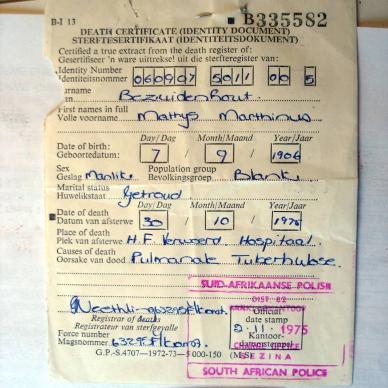 B-I 13
B335582
DEATH CERTIFICATE (IDENTITY DOCUMENT)
STERFTESERTIFIKAAT (IDENTITEITSDOKUMENT)
Certified a true extract from the death register of:
Gesertifiseer 'n ware uittreksel uit die sterfteregister van:
Identity Number
Identiteitsnommer 060907 5011 00 5
Surname
Van Bezuidenhout.
First names in full
Volle voorname Mathys Marthinus
Day/Dag Month/Maand Year/Jaar
Date of birth:
Geboortedatum: 7 / 9 / 1906
Sex Population group
Geslag Manlik Bevolkingsgroep Blank
Marital status
Huwelikstaat Getroud
Day/Dag Month/Maand Year/Jaar
Date of death
Datum van afsterwe 30 / 10 / 1975
Place of death
Plek van afsterwe H.F. Verwoerd Hospitaal.
Causes of death
Oorsake van dood Pulmonale Tuberkulose.
SUID-AFRIKAANSE POLISIE
DIST. 82
Registrar of deaths
Registrateur van sterfgevalle
Official
date stamp
2.11.1975
Kantoor-
CHARGE OFFICE
Force number
Magsnommer
G.P.-S.4707—1972-73—5 000-150 (MS)
SOUTH AFRICAN POLICE